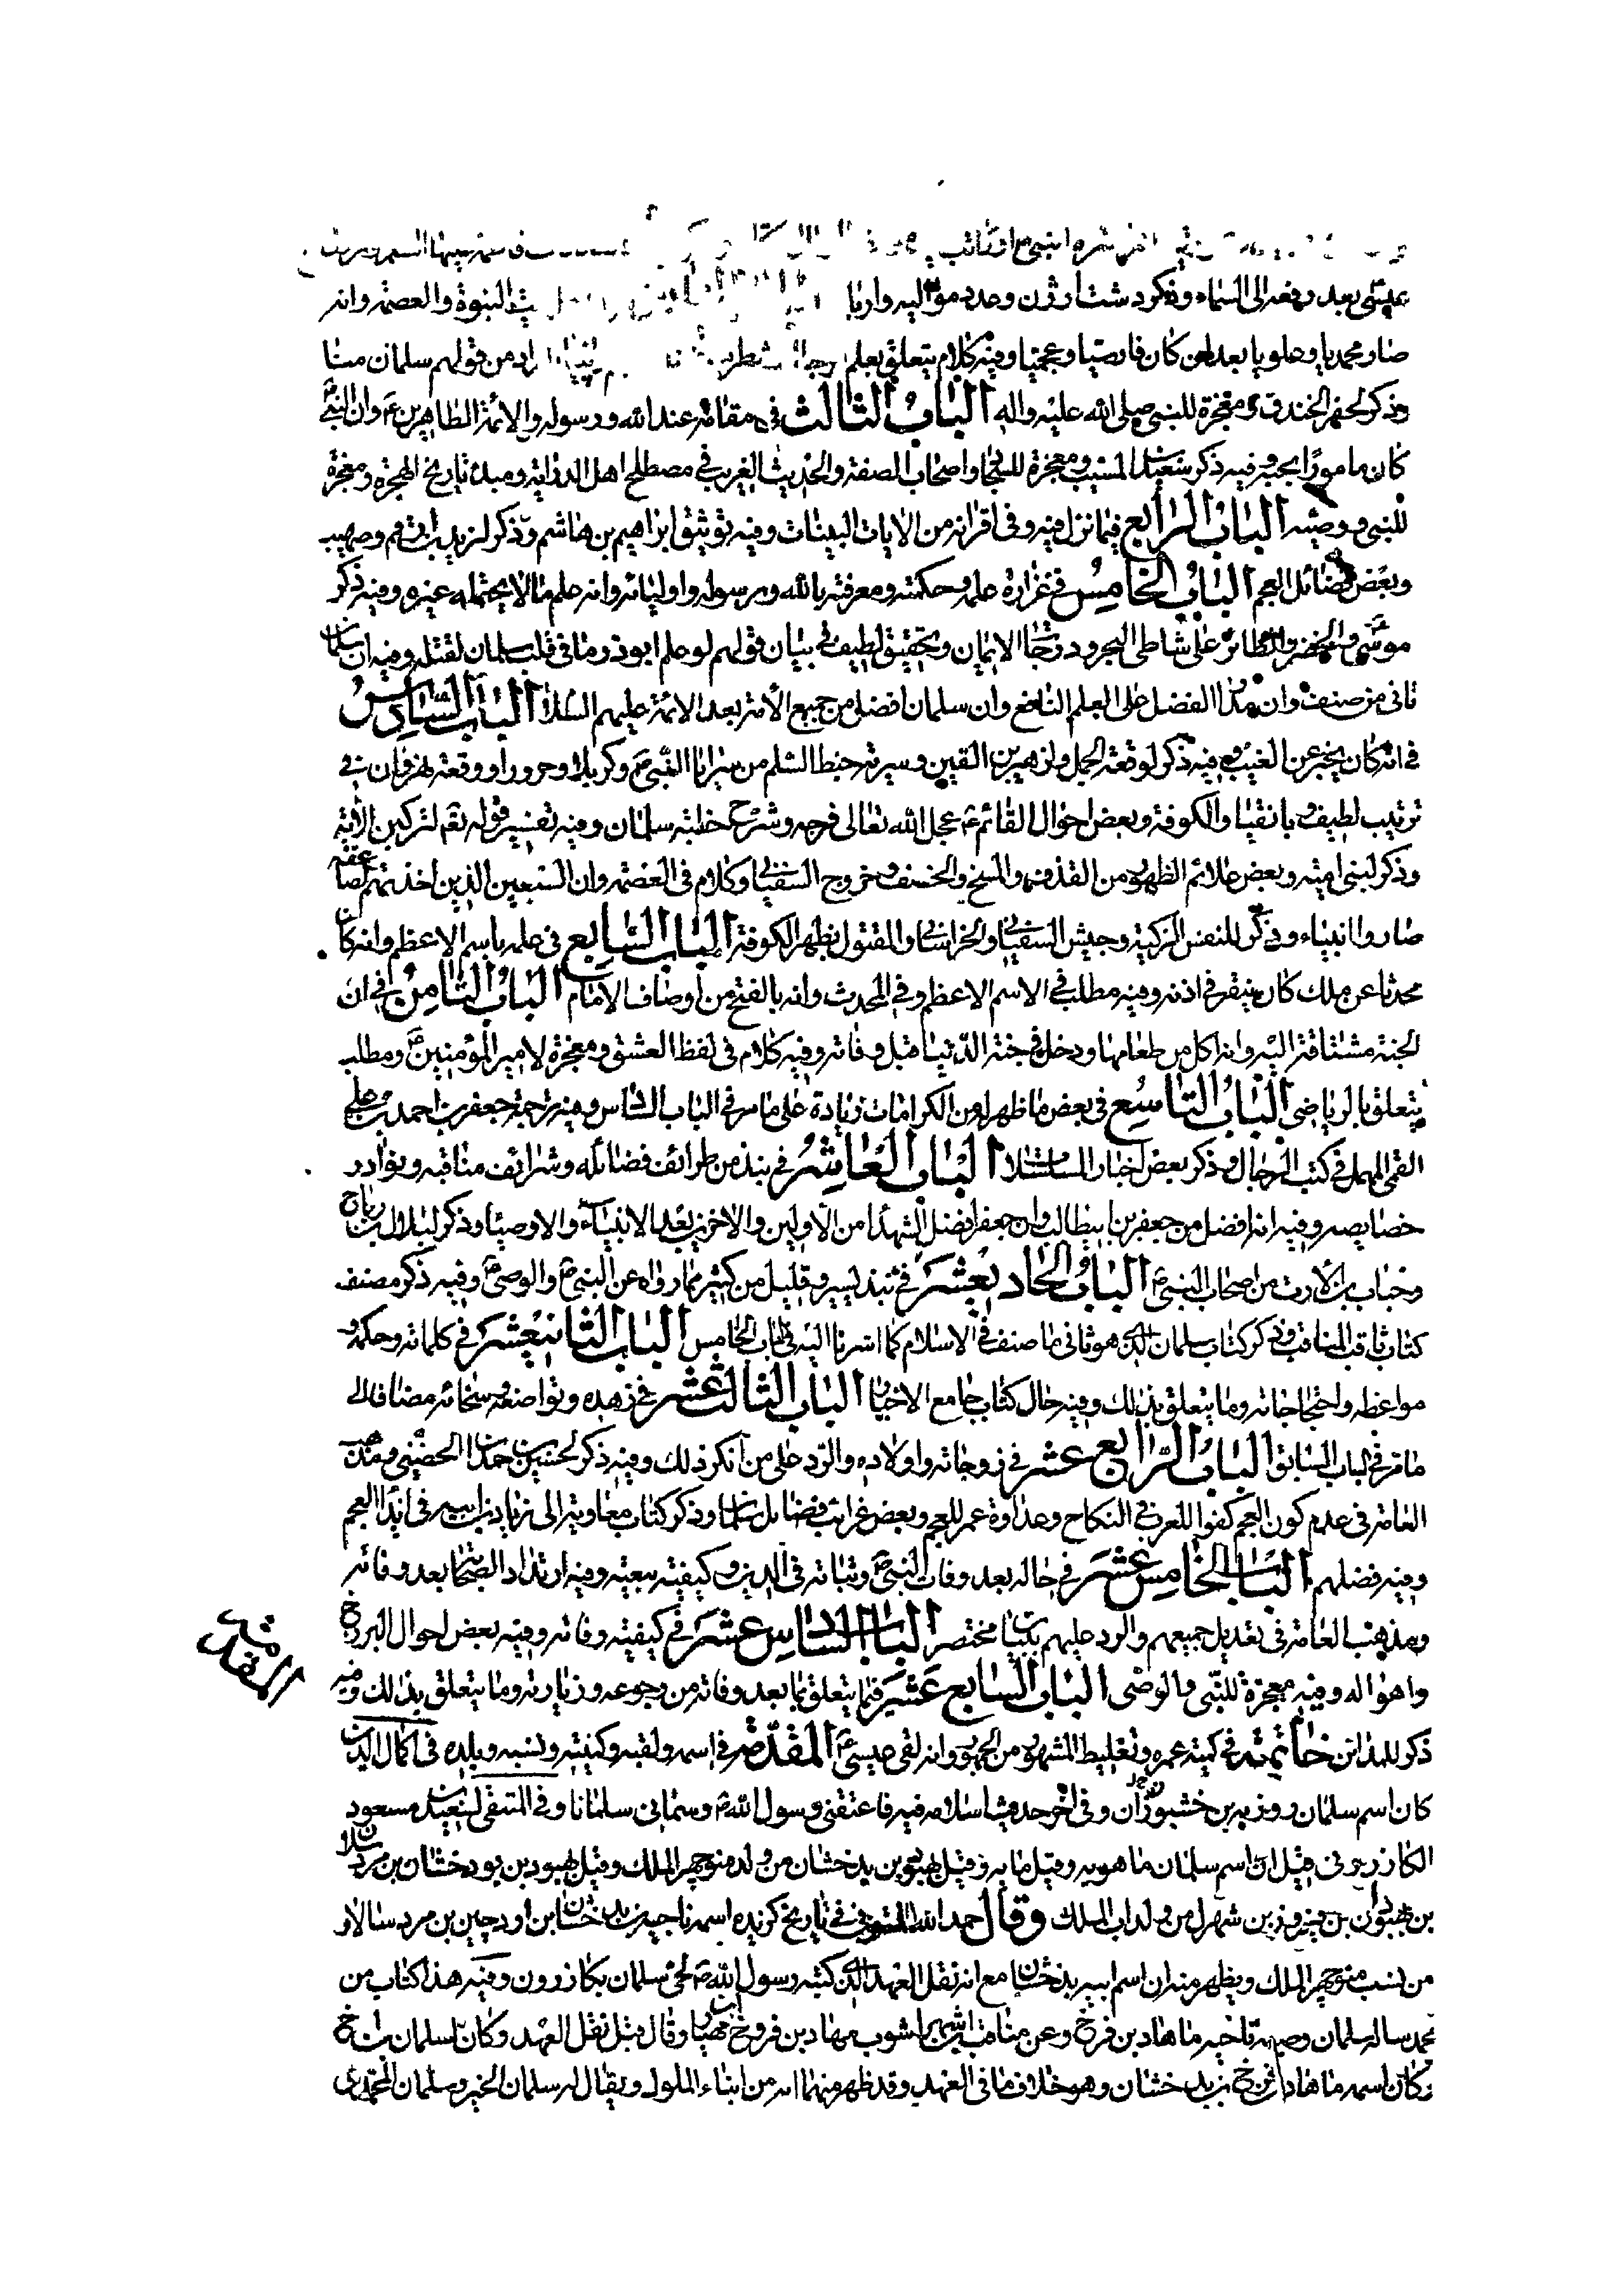 عيسى بعد رفعه الى السماء وذكر دشت ارژن وعدد مواليه واربا النبوة والعصمة وانه
صار محمديا وعلويا بعد ان كان فارسيا وعجميا وفيه كلام يتعلق بعلم من قولهم سلمان منا
وذكر لحفر الخندق ومعجزة للنبي صلى الله عليه واله الباب الثالث في مقامه عند الله ورسوله والائمة الطاهرين ع وان النبي ص
كان مامورا بحبه وفيه ذكر سعيد بن المسيب ومعجزة للسجاد واصحاب الصفة والحديث الغريب في مصطلح اهل الدراية ومبدء تاريخ الهجرة ومعجزة
للنبي ووصيه الباب الرابع فيما نزل فيه وفي اقرانه من الايات البينات وفيه توثيق ابراهيم بن هاشم وذكر لزيد بن ارقم وصهيب
وبعض فضائل العجم الباب الخامس في غزارة علمه وحكمته ومعرفته بالله وبرسوله واوليائه وانه علم ما لا يحتمله غيره وفيه ذكر
موسى والخضر والطائر على شاطئ البحر ودرجات الايمان وتحقيق لطيف في بيان قولهم لو علم ابوذر ما في قلب سلمان لقتله وفيه ان سلمان
ثاني من صنف وان مدار الفضل على العلم النافع وان سلمان افضل من جميع الامة بعد الائمة عليهم السلام الباب السادس
في انه كان يخبر عن الغيب وفيه ذكر لوقعة الجمل ولزهير بن القين وسيرة خبط السلم من سرايا النبي ص وكربلا وحرورا ووقعة نهروان في
ترتيب لطيف وبانقيا والكوفة وبعض احوال القائم ع عجل الله تعالى فرجه وشرح خطبة سلمان وفيه تفسير قوله تعالى لتركبن الآية
وذكر لبني امية وبعض علائم الظهور من القذف والمسخ والخسف وخروج السفياني وكلام في العصمة وان السبعين الذين اخذتهم الصاعقة
صاروا انبياء وذكر للنفس الزكية وجيش السفياني والخراساني والمقتول بظهر الكوفة الباب السابع في علمه باسم الاعظم وانه كان
محدثا عن ملك كان ينقر في اذنه وفيه مطلب في الاسم الاعظم وفي المحدث وانه بالفتح من اوصاف الامام الباب الثامن في ان
الجنة مشتاقة اليه وانه اكل من طعامها ودخل في جنة الدنيا قبل وفاته وفيه كلام في لفظ العشق ومعجزة لامير المؤمنين ع ومطلب
يتعلق بالرياضي الباب التاسع في بعض ما ظهر له من الكرامات زيادة على ما مر في الباب السادس وفيه ترجمة جعفر بن احمد بن علي
القمي المهمل في كتب الرجال وذكر بعض اخبار المسلسلات الباب العاشر في نبذ من طرائف فضائله وشرائف مناقبه ونوادر
خصايصه وفيه انه افضل من جعفر بن ابيطالب وان جعفر افضل الشهدا من الاولين والاخرين بعد الانبياء والاوصيا وذكر لبلال بن رباح
وخباب بن الارت من اصحاب النبي ص الباب الحاديعشر في نبذ يسير وقليل من كثير مما رواه عن النبي ص والوصي ع وفيه ذكر مصنف
كتاب ثاقب المناقب وذكر كتاب سلمان الذي هو ثاني ما صنف في الاسلام كما اشرنا اليه في الباب الخامس الباب الثانيعشر في كلماته وحكمه و
مواعظه واحتجاجاته وما يتعلق بذلك وفيه حال كتاب جامع الاخبار الباب الثالث عشر في زهده وتواضعه وسخائه مضافا الى
ما مر في الباب السابق الباب الرابع عشر في زوجاته واولاده والرد على من انكر ذلك وفيه ذكر لحسين بن حمدان الحضيني ومذهب
العامة في عدم كون العجم كفوا للعرب في النكاح وعداوة عمر للعجم وبعض غرائب فضايل سلمان وذكر كتاب معاوية الى زياد بن ابيه في ايذا العجم
وفيه فضلهم الباب الخامس عشر في حاله بعد وفات النبي ص وثباته في الدين وكيفية بيعته وفيه ارتداد الصحابة بعد وفاته
ومذهب العامة في تعديل جميعهم والرد عليهم ببيان مختصر الباب السادس عشر في كيفية وفاته وفيه بعض احوال البرزخ
واهواله وفيه معجزة للنبي والوصي الباب السابع عشر فيما يتعلق بما بعد وفاته من رجوعه وزيارته وما يتعلق بذلك وفيه
ذكر للمداين خاتمة في كمية عمره وتغليط المشهور من الجمهور وانه لقى عيسى ع المقدمة في اسمه ولقبه وكنيته ونسبه وبلده في اكمال الدين
المقدمة
كان اسم سلمان روزبه بن خشبوذان وفي اخر حديث اسلامه فيه فاعتقني رسول الله ص وسماني سلمانا وفي المنتقى لسعيد بن مسعود
الكازروني قيل ان اسم سلمان ماهويه وقيل مابه وقيل بهبود بن بدخشان من ولد منوچهر الملك وقيل بهبود بن بودخشان بن مرد سلان
بن بهبودان بن فيروز بن شهرك من ولد اب الملك وقال حمد الله المستوفي في تاريخ كزيده اسمه ناجيه بن بدخشان ابن اودجين بن مرد سالار
من نسب منوچهر الملك ويظهر منه ان اسم ابيه بدخشان مع انه نقل العهد الذي كتبه رسول الله ص لحي سلمان بكازرون وفيه هذا كتاب من
محمد ساله سلمان وصية باخيه ماهاد بن فرخ وعن مناقب ابن شهراشوب مهاد بن فروخ بن مهيار وقال قبل نقل العهد وكان سلمان بن خ
وكان اسمه ماهاد بن فرخ بن بدخشان وهو خلاف ما في العهد وقد ظهر منهما انه من ابناء الملوك ويقال له سلمان الخير وسلمان المحمدي